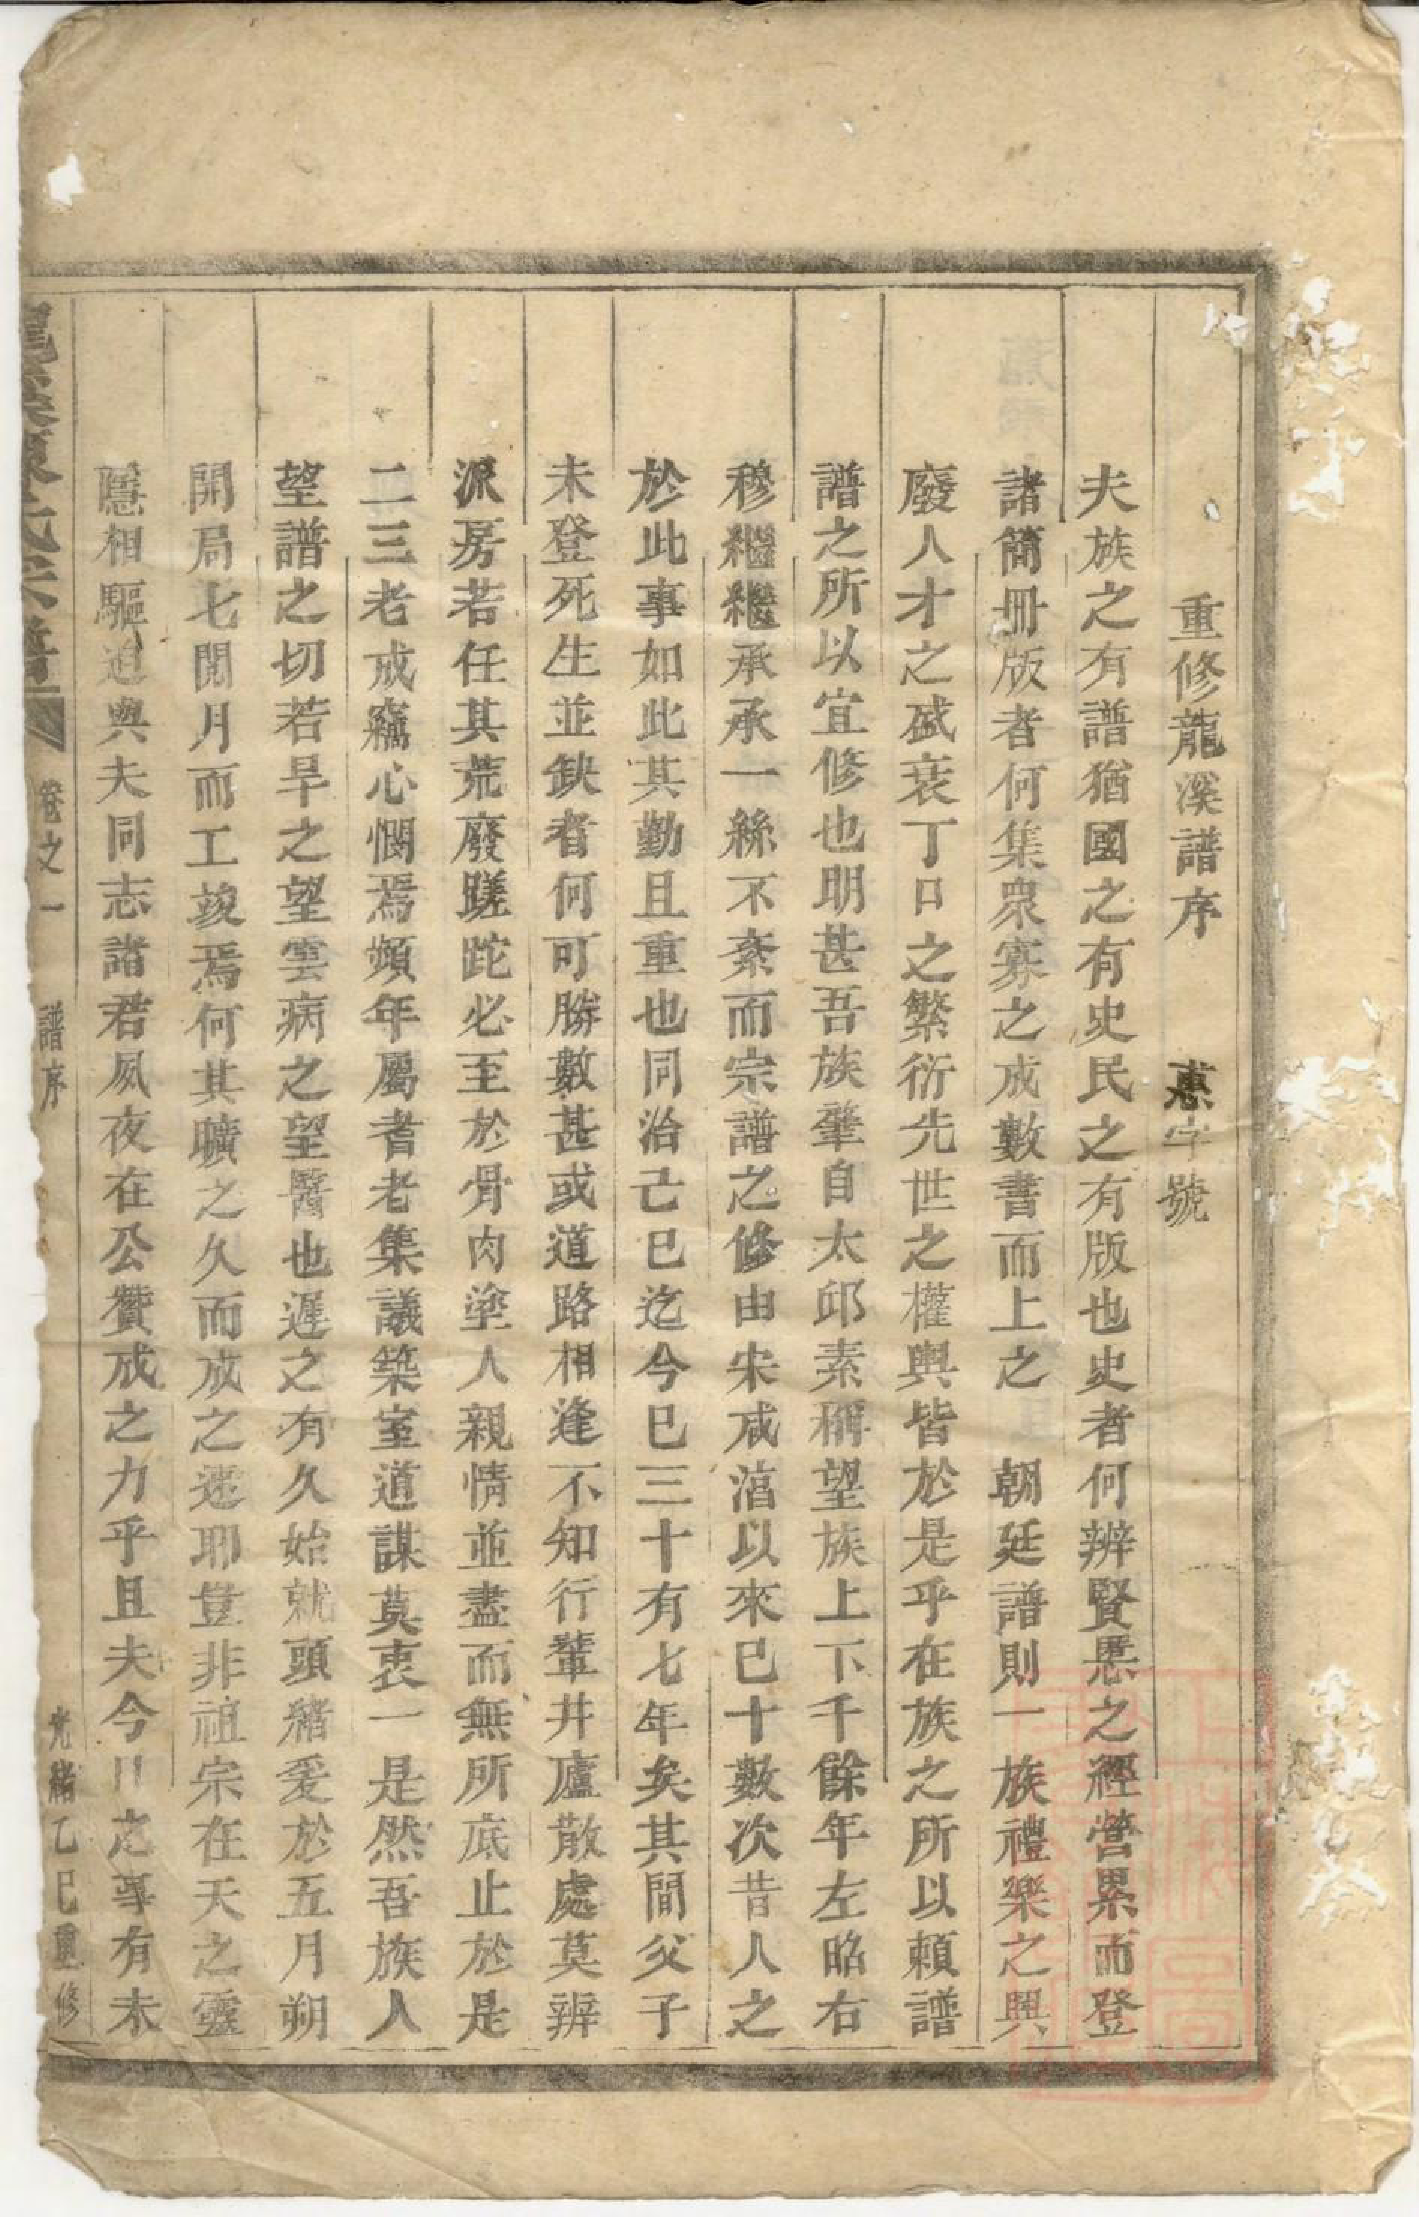 重修龍溪譜序 惠字號
夫族之有譜猶國之有史民之有版也史者何辨賢愚之經營累而登
諸簡冊版者何集衆寡之成數書而上之 朝廷譜則一族禮樂之興
廢人才之盛衰丁口之繁衍先世之權輿皆於是乎在族之所以賴譜
譜之所以宜修也明甚吾族肇自太邱素稱望族上下千餘年左昭右
穆繼繼承承一絲不紊而宗譜之修由宋咸湻以來已十數次昔人之
於此事如此其勤且重也同治己巳迄今已三十有七年矣其間父子
未登死生並缺者何可勝數甚或道路相逢不知行輩井廬散處莫辨
派房若任其荒廢蹉跎必至於骨肉塗人親情並盡而無所底止於是
二三老成竊心憫焉頻年屬耆老集議築室道謀莫衷一是然吾族人
望譜之切若旱之望雲病之望醫也遲之有久始就頭緒爰於五月朔
開局七閱月而工竣焉何其曠之久而成之速耶豈非祖宗在天之靈
隱相驅迫與夫同志諸君夙夜在公贊成之力乎且夫今日之事有未
龍溪陳氏宗譜 卷之一 譜序 光緒乙巳重修